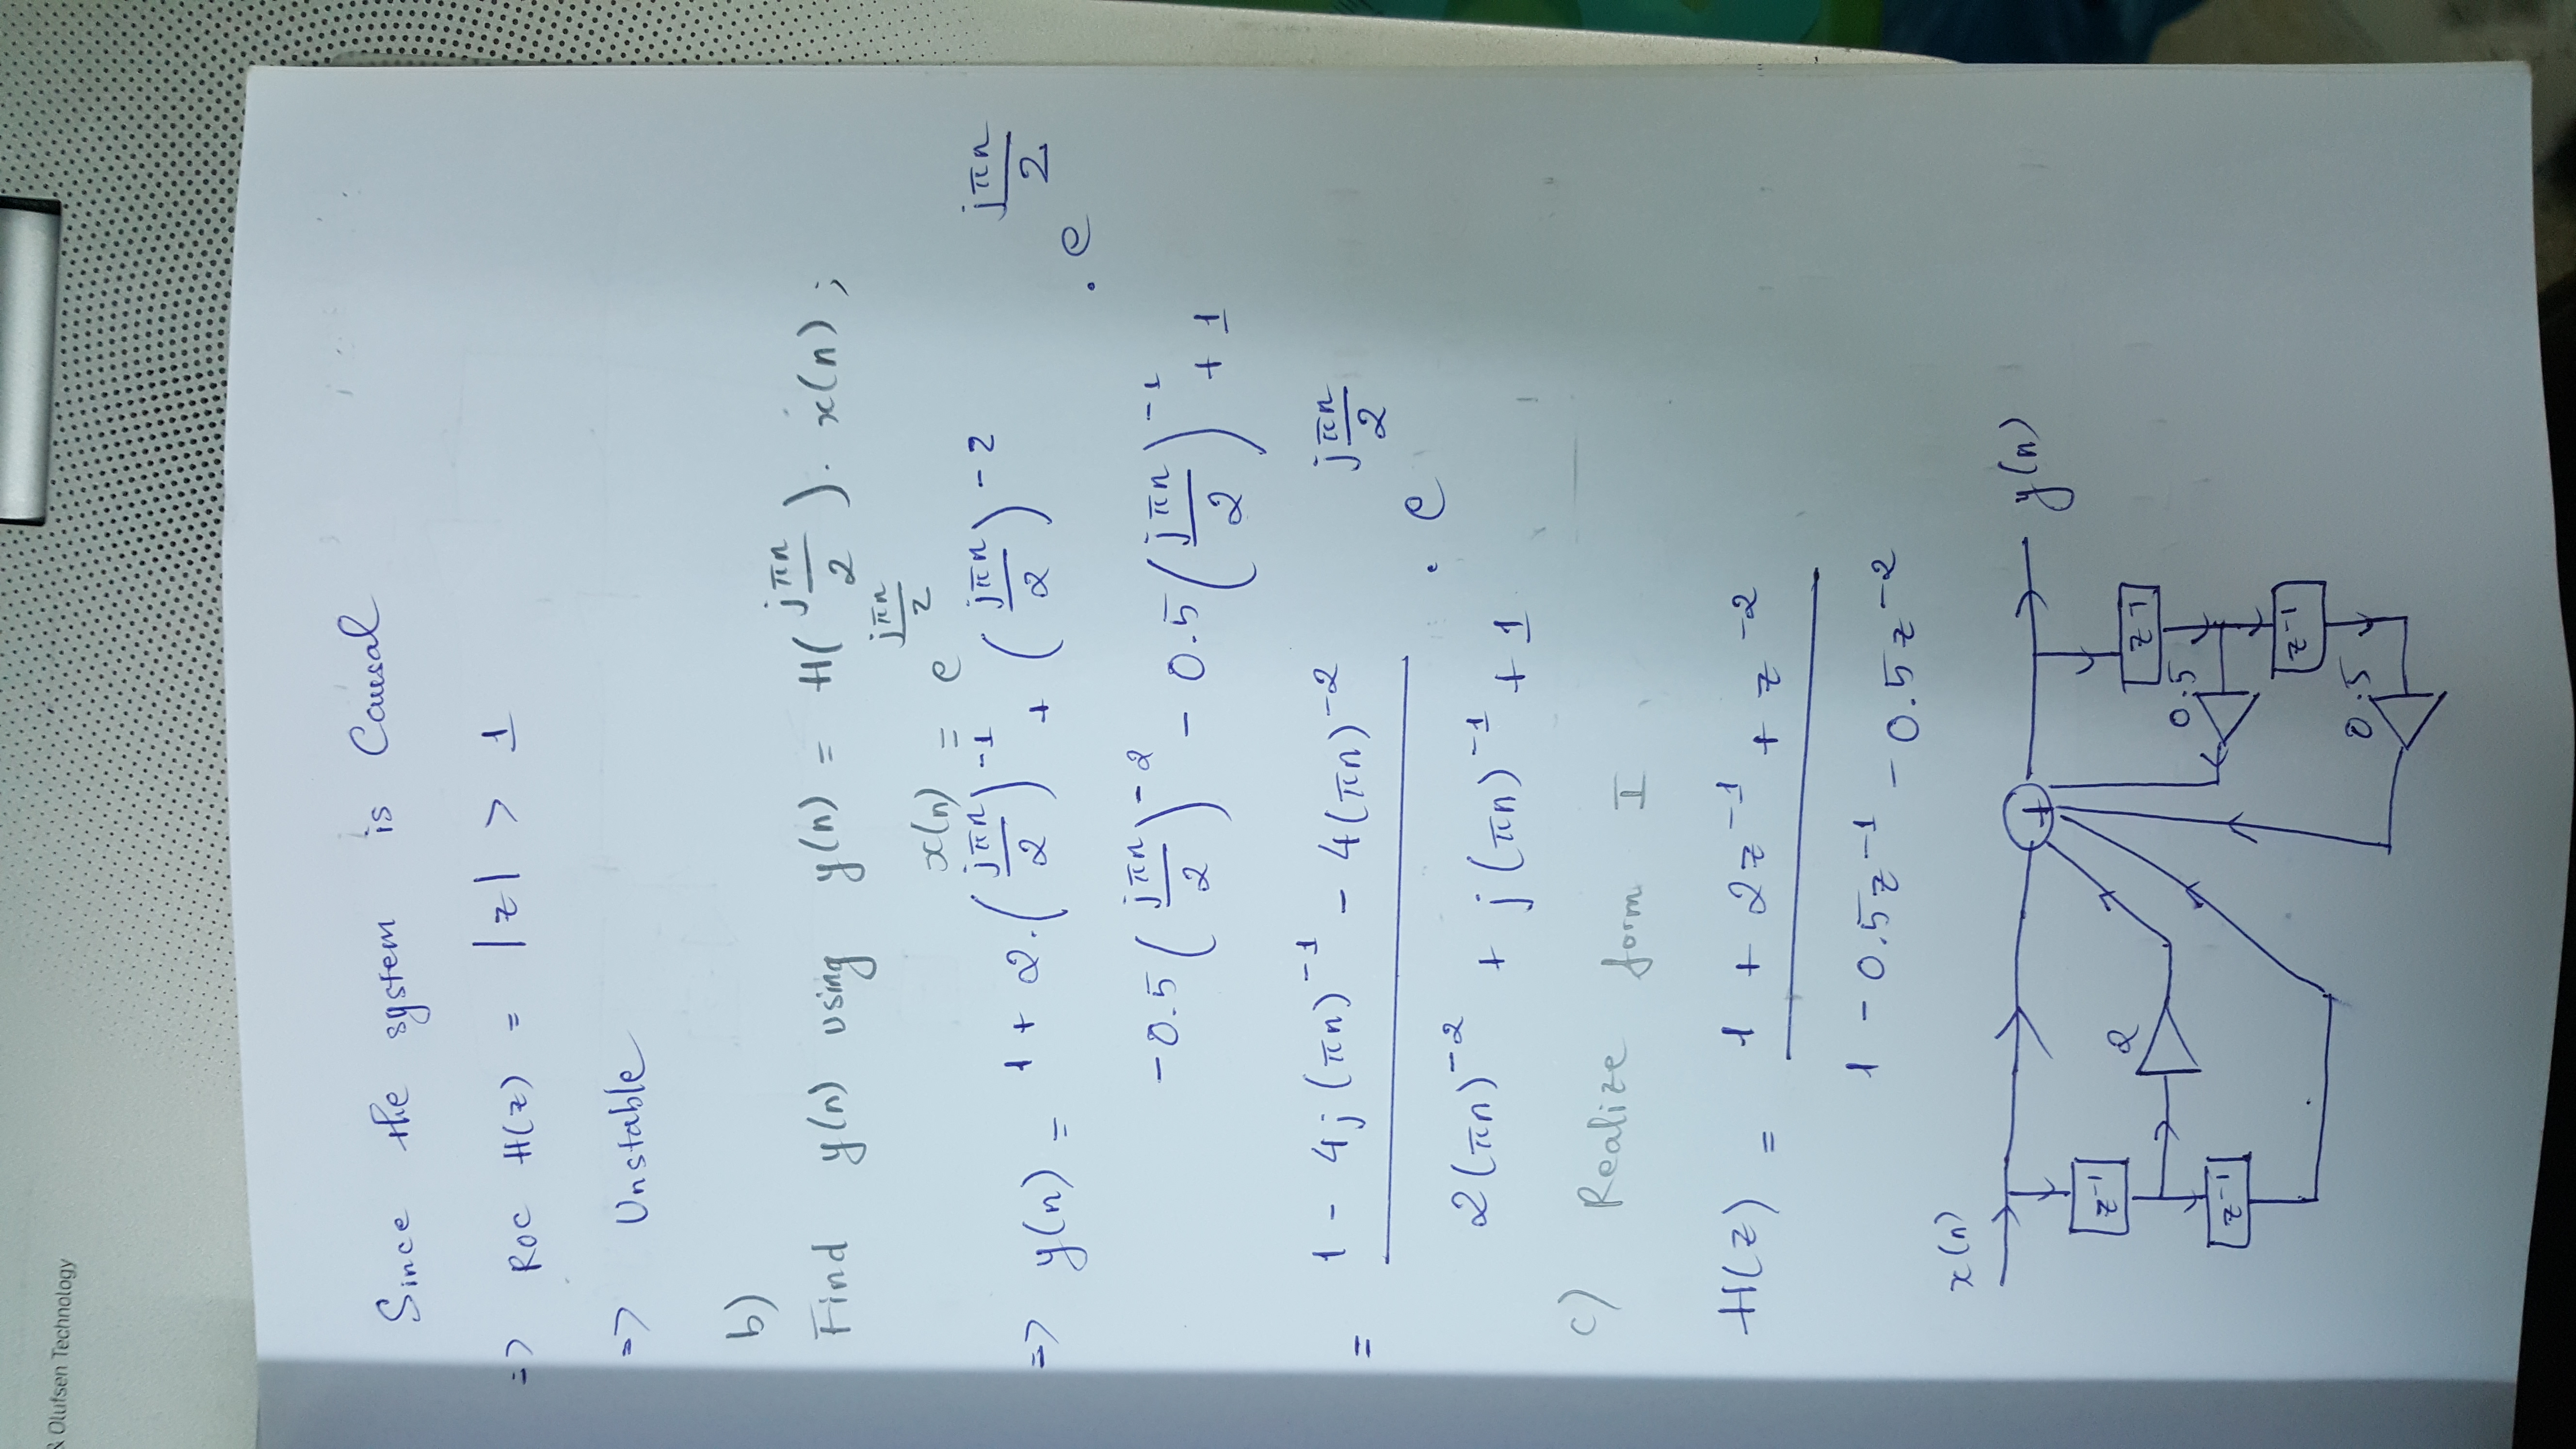 & Olufsen Technology
Since the system is Causal
=> ROC H(z) = |z| > 1
=> Unstable
b)
Find y(n) using y(n) = H(jπn/2). x(n) ;
x(n) = e^(jπn/2)
=> y(n) = (1 + 2.(jπn/2)^-1 + (jπn/2)^-2) / (-0.5(jπn/2)^-2 - 0.5(jπn/2)^-1 + 1) . e^(jπn/2)
= (1 - 4j(πn)^-1 - 4(πn)^-2) / (2(πn)^-2 + j(πn)^-1 + 1) . e^(jπn/2)
c) Realize form I
H(z) = (1 + 2z^-1 + z^-2) / (1 - 0.5z^-1 - 0.5z^-2)
x(n)
+
y(n)
z^-1
2
z^-1
0.5
z^-1
z^-1
0.5